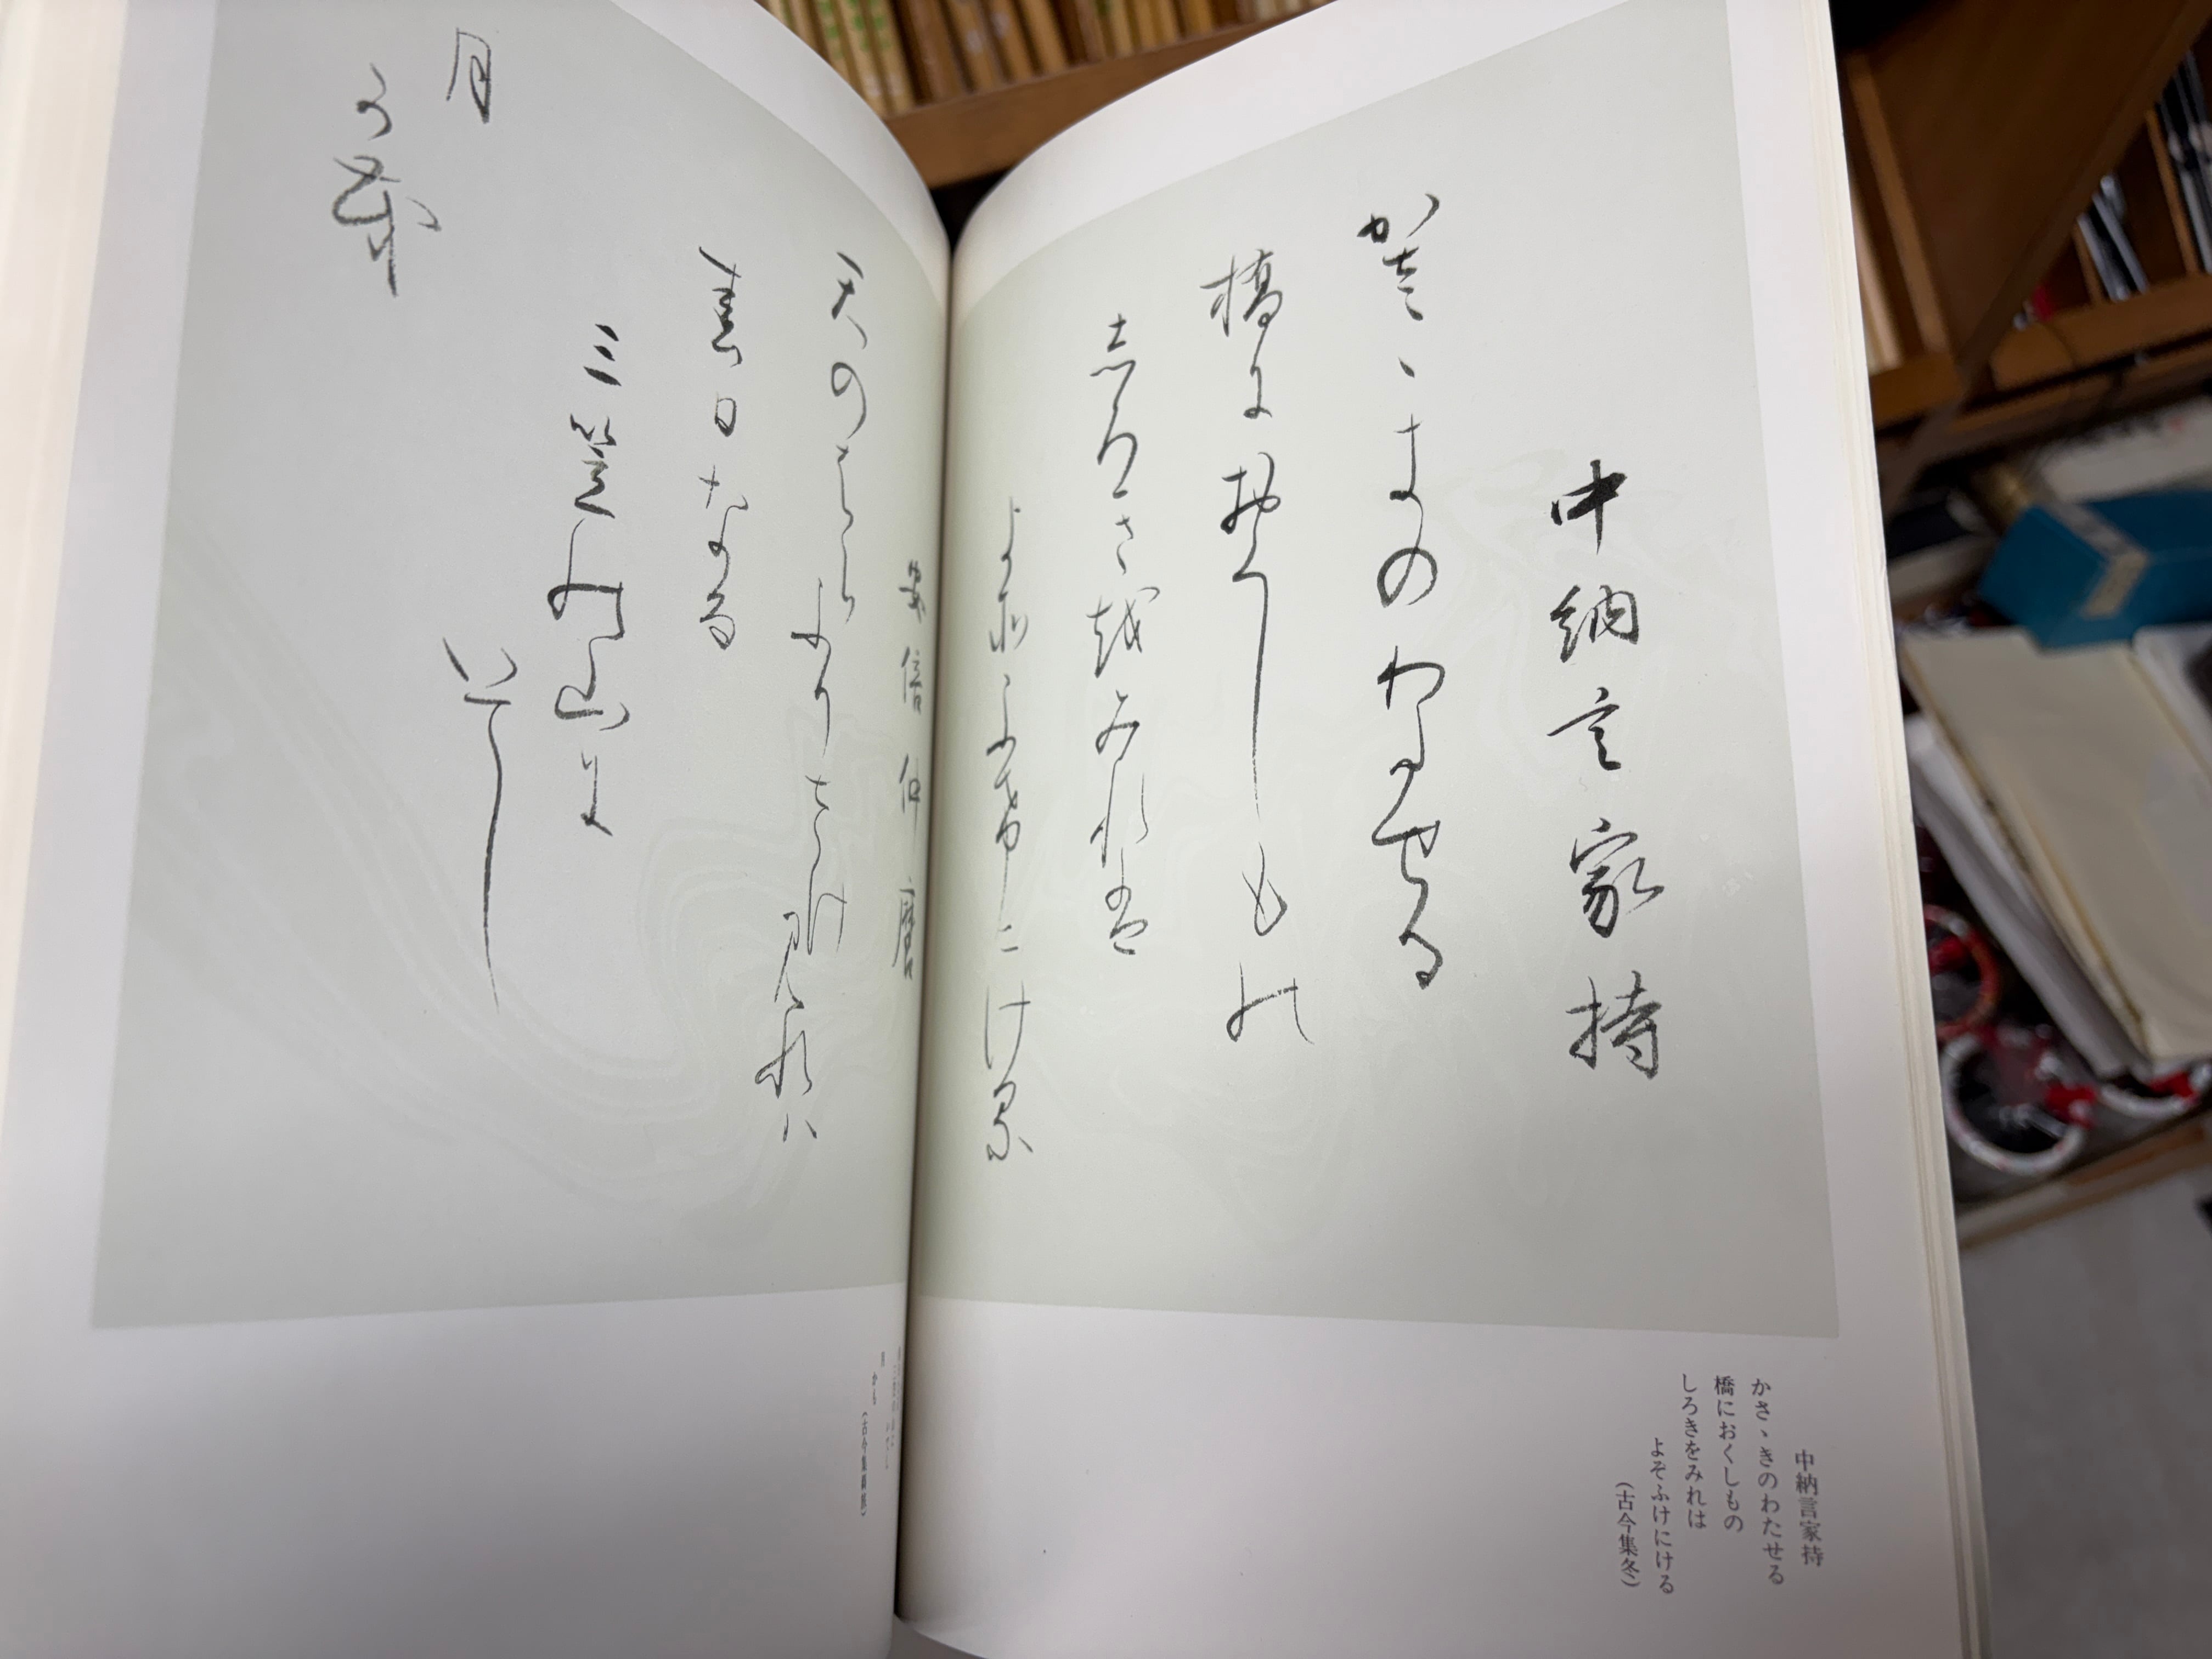 中納言家持
かさゝきのわたせる
橋におくしもの
志ろきをみれは
よそふけにける
安倍仲麿
天のはらふりさけ見れハ
春日なる
三笠の山に
いてし
月
かも
中納言家持
かさゝきのわたせる
橋におくしもの
しろきをみれは
よぞふけにける
(古今集冬)
月かも(古今集羇旅)